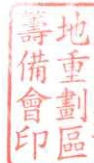 地重劃區
籌備會印